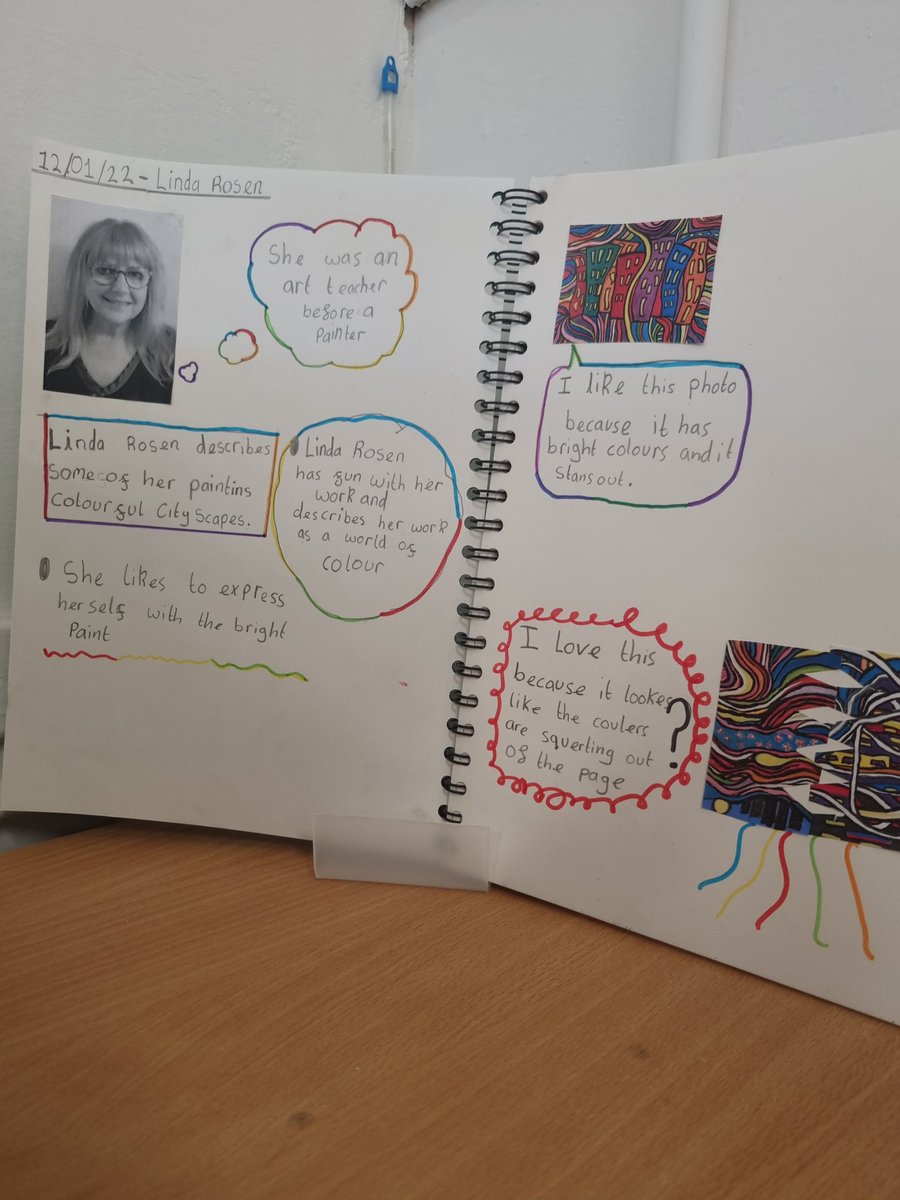 12/01/22 - Linda Rosen
She was an
art teacher
before a
Painter
Linda Rosen describes
some of her paintins
Colourful City Scapes.
Linda Rosen
has fun with her
work and
describes her work
as a world of
colour
She likes to express
herself with the bright
Paint
I like this photo
because it has
bright colours and it
stans out.
I Love this
because it lookes
like the coulers
are squerting out
of the page
?